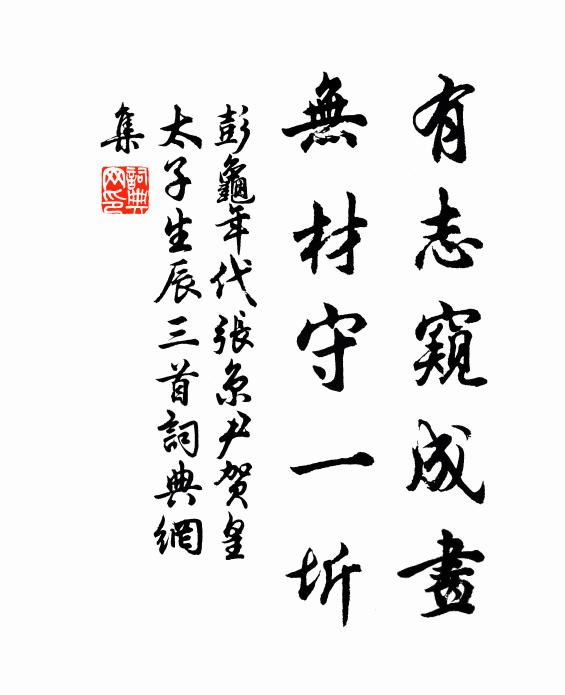 有志窺成畫
無材守一圻
彭龜年代張京尹賀皇
太子生辰三首詞典網
集
詞典网印